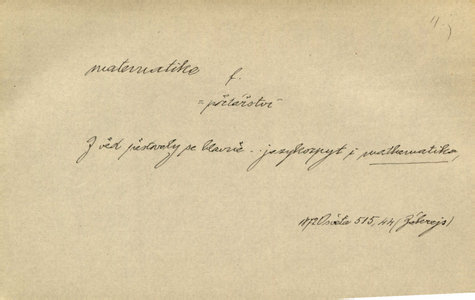 matematika f.
= počtářství
Z věd pěstovaly se hlavně .. jazykozpyt i mathematika,
1872 Osvěta 515, 44 (Zákrejs)